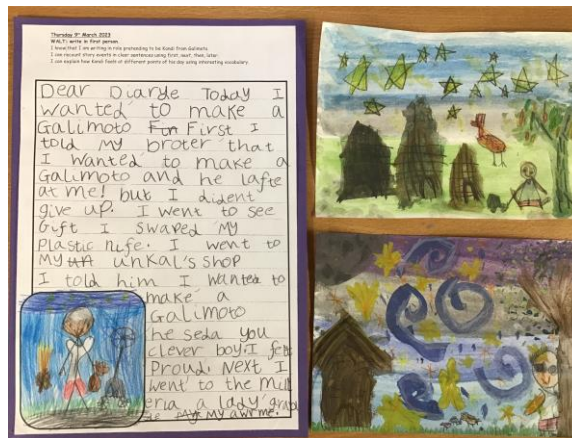 Thursday 9th March 2023
WALT: write in first person
I know that I am writing in role pretending to be Kondi from Galimoto.
I can recount story events in clear sentences using first, next, then, later.
I can explain how Kondi feels at different points of his day using interesting vocabulary.
Dear Diarye Today I
wanted to make a
Galimoto Fun First I
told my broter that
I wanted to make a
Galimoto and he lafte
at me! but I dident
give up. I went to see
Gift I swaped My
Plastic nife. I went to
My unkal's shop
I told him I wanted to
make a
Galimoto
he seda you
clever boy. I felt
Proud. Next I
went to the Mill
eria a lady grab
My awrme.